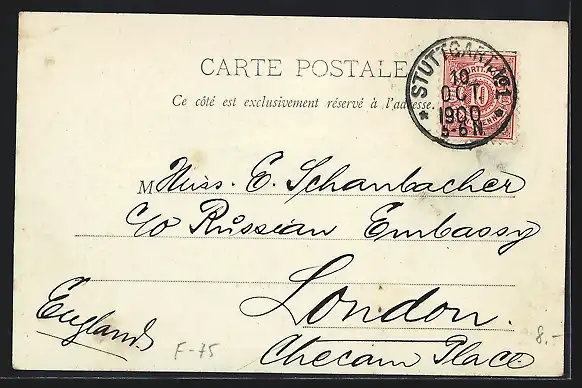 CARTE POSTALE
Ce côté est exclusivement réservé à l'adresse.
STUTTGART No1
10
OCT
1900
5-6 N.
10
M Miss. E. Schanbacher
c/o Rŭssian Embassy
London.
England
Checam Place
F-75
8.-